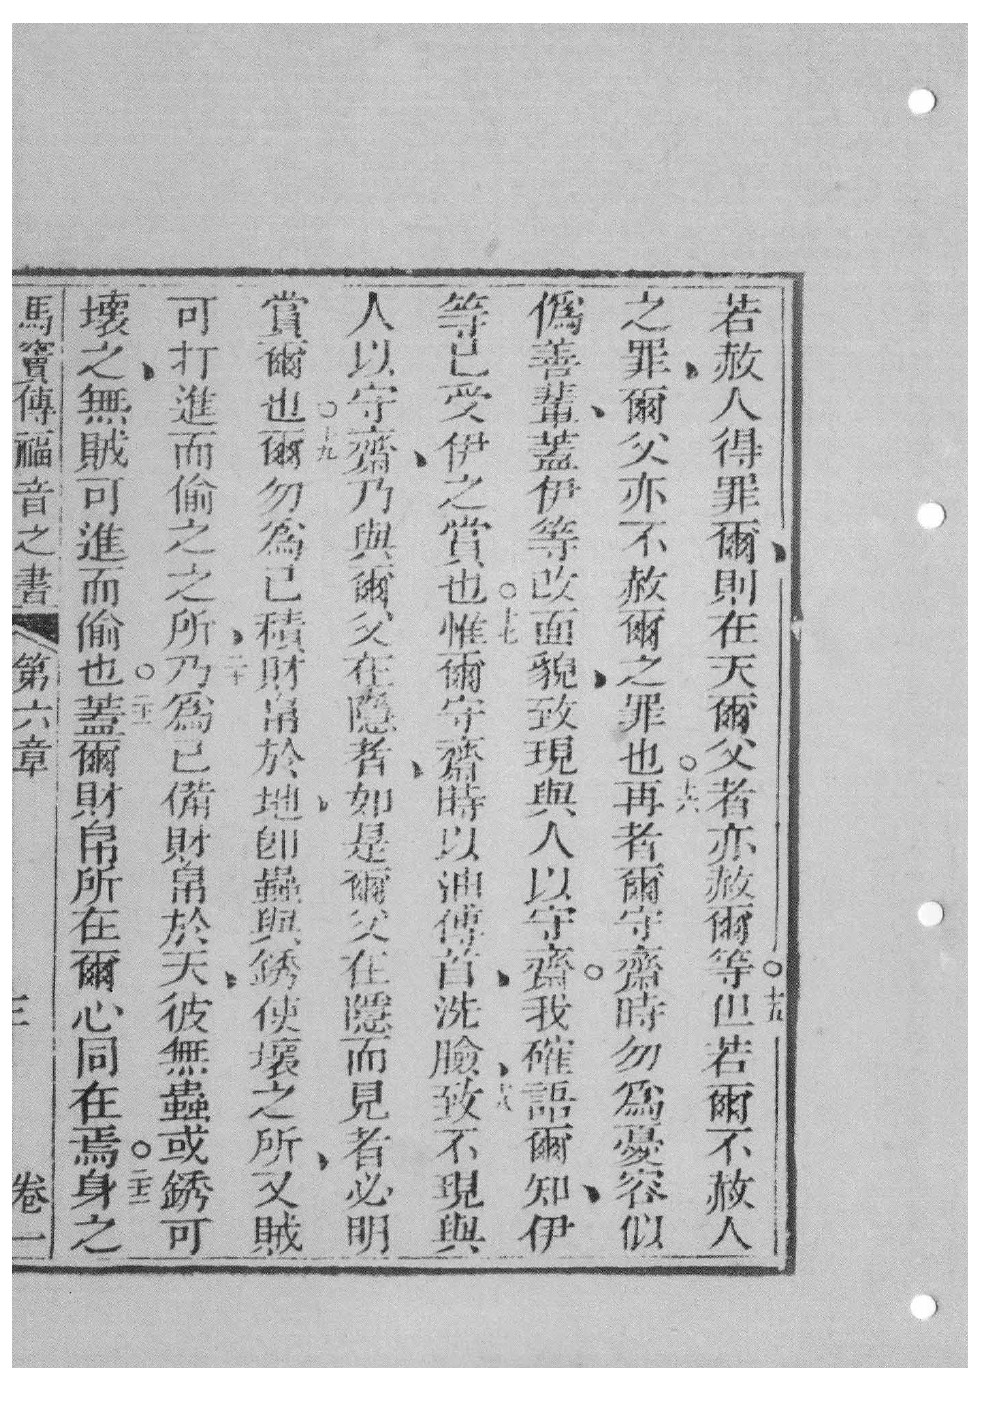 若赦人得罪爾、則在天爾父者亦赦爾等○十五但若爾不赦人
之罪、爾父亦不赦爾之罪也○十六再者爾守齋時勿為憂容似
偽善輩、蓋伊等改面貌、致現與人以守齋○我確語爾知、伊
等已受伊之賞也○十七惟爾守齋時以油傅首、洗臉、十八致不現與
人以守齋、乃與爾父在隱者、如是爾父在隱而見者必明
賞爾也○十九爾勿為己積財帛於地、即蟲與銹使壞之所、又賊
可打進而偷之之所、二十乃為己備財帛於天、彼無蟲或銹可
壞之、無賊可進而偷也○二十一蓋爾財帛所在爾心同在焉○二十二身之
馬竇傳福音之書 第六章 三 卷一